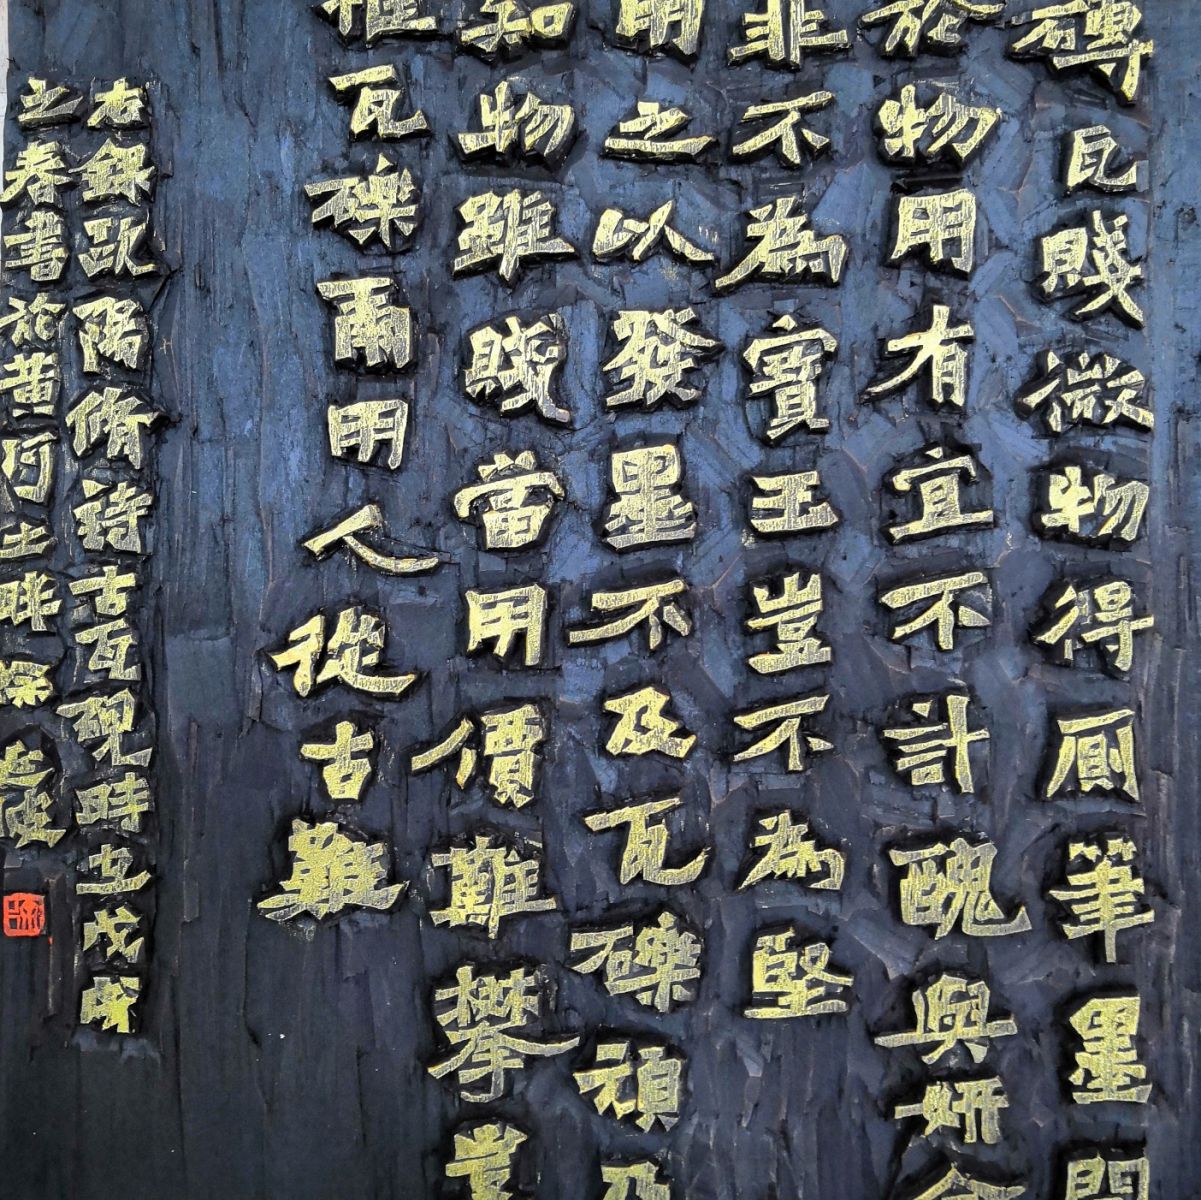 磚瓦賤微物得廁筆墨間
於物用有宜不計醜與妍金
非不為寶玉豈不為堅
用之以發墨不及瓦礫頑乃
知物雖賤當用價難攀豈
惟瓦礫爾用人從古難
右錄歐陽脩詩古瓦硯時在戊戌
之春書於黃河之畔